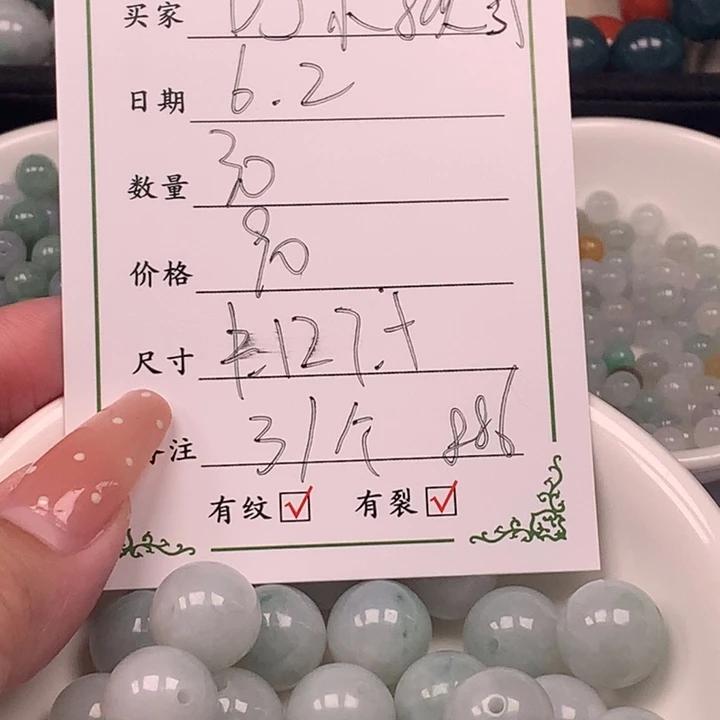 买家
日期 6.2
数量 30
价格 90
尺寸 127.
备注 31个 886
有纹 ☑ 有裂 ☑